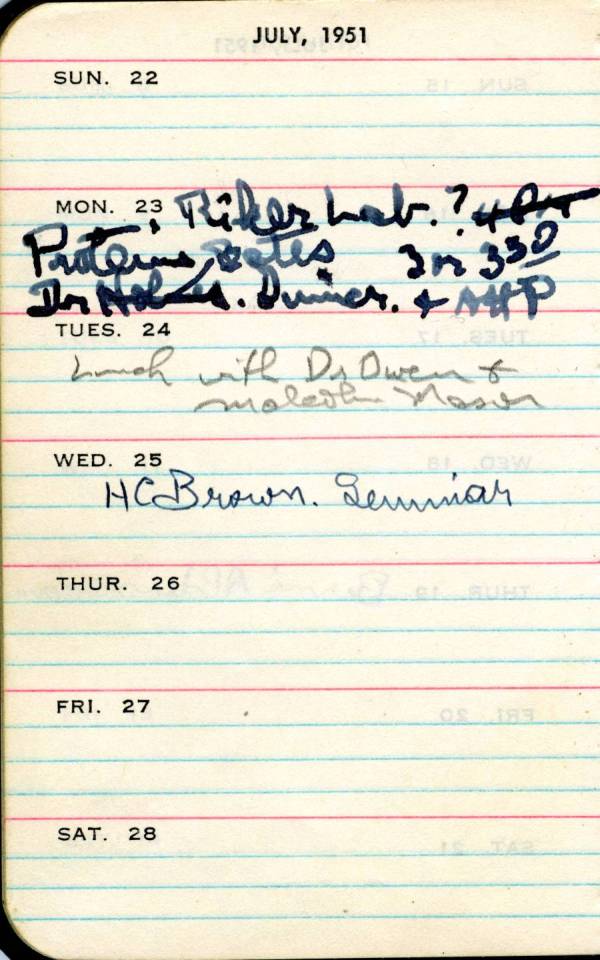 JULY, 1951
SUN. 22
MON. 23 Riker Lab. ?
Proteins 3 or 3 30
Dr Holmes. Dinner. + AHP
TUES. 24
Lunch with Dr Owen &
Malcolm Mason
WED. 25
HC Brown. Seminar
THUR. 26
FRI. 27
SAT. 28